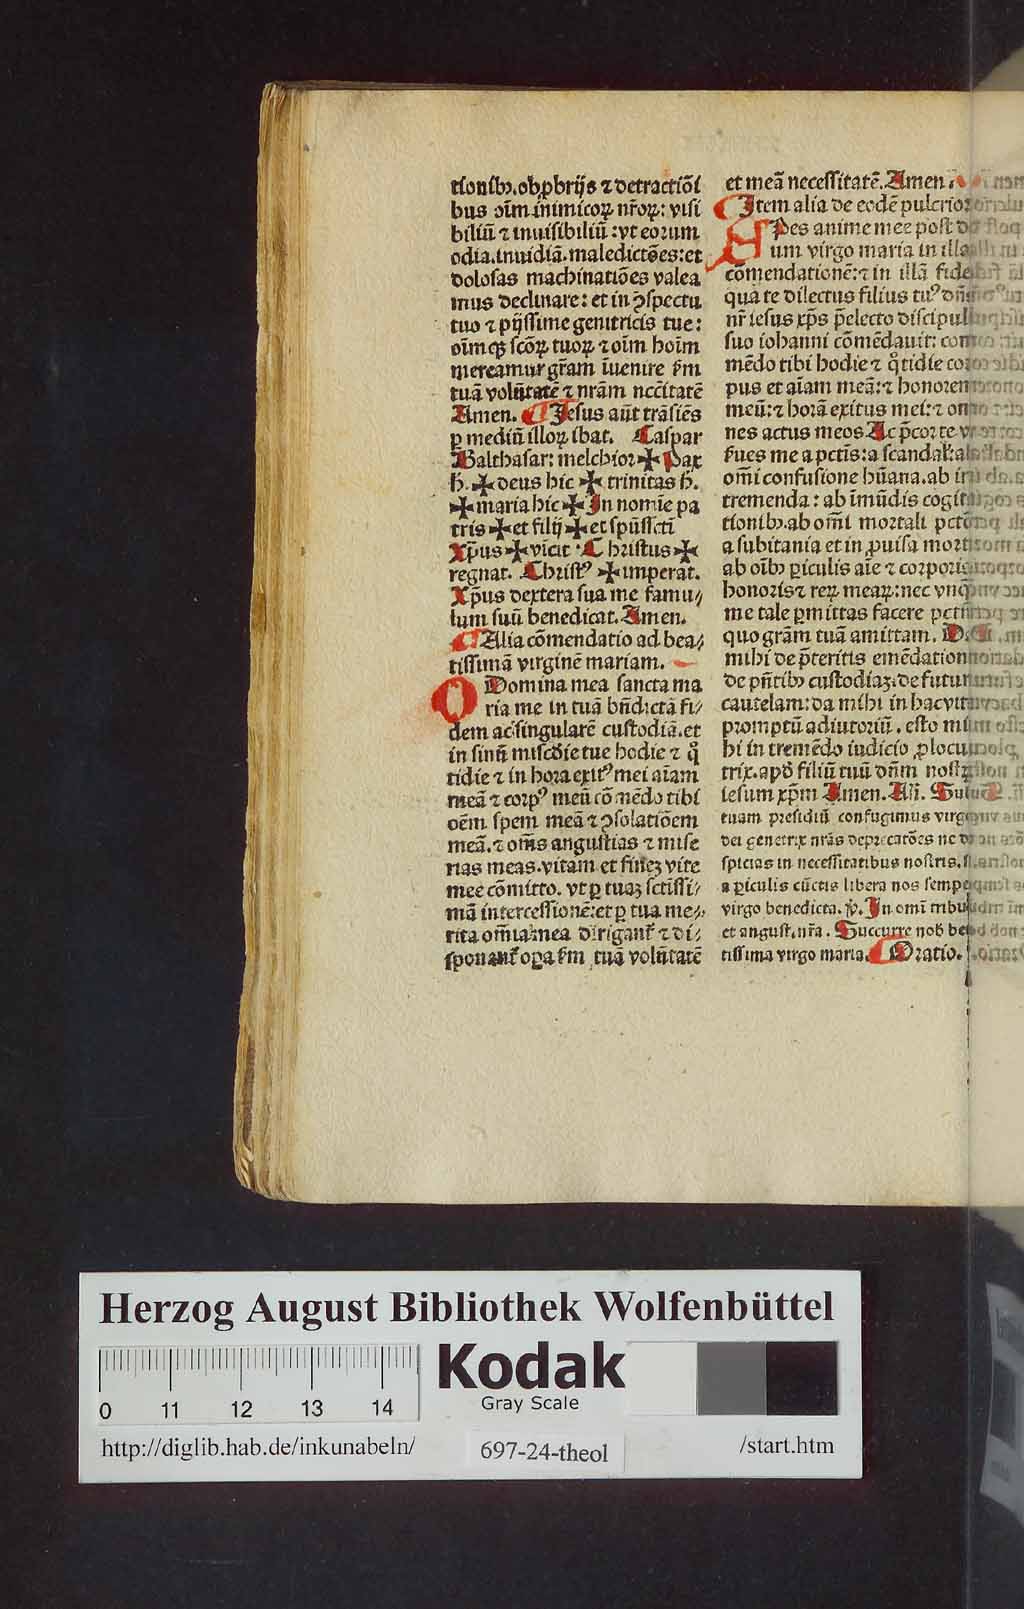 tionibꝫ.obꝓbrijs ⁊ detractiōi
bus oīm inimicoꝝ nr̄oꝝ: visi
biliū ⁊ inuisibiliū: vt eorum
odia.inuidiā.maledictōes: et
dolosas machinatiōes valea
mus declinare: et in ꝯspectu
tuo ⁊ pijssime genitricis tue:
oīmqꝫ scōꝝ tuoꝝ ⁊ oīm hoīm
mereamur gr̄am īuenire ẜm
tuā volūtatē ⁊ nr̄am nccītatē
Amen. Jesus aūt trāsiēs
ꝑ mediū illoꝝ ibat. Caspar
Balthasar: melchior ✠ Pax
h̄. ✠ deus hic ✠ trinitas h̄.
✠ maria hic ✠ In nomīe pa
tris ✠ et filij ✠ et spūssctī
Xp̄us ✠ vīcit Christus ✠
regnat. Christꝰ ✠ imperat.
Xp̄us dextera sua me famu⸗
lum suū benedicat. Amen.
Alia cōmendatio ad bea⸗
tissimā virginē mariam.
O Domina mea sancta ma
ria me in tuā bn̄dictā fi⸗
dem ac singularē custodiā.et
in sinū mīscd̄ie tue hodie ⁊ qͦ
tidie ⁊ in hora exitꝰ mei aīam
meā ⁊ corpꝰ meū cōmēdo tibi
oēm spem meā ⁊ ꝯsolatiōem
meā.⁊ om̄s angustias ⁊ mise
rias meas.vitam et finēꝫ vite
mee cōmitto. vt ꝑ tuaꝫ sctissi⸗
mā intercessionē: et ꝑ tua me⸗
rita om̄ia mea dirigant᷑ ⁊ di⸗
sponant᷑ oꝑa ẜm tuā volūtatē
et meā necessitatē. Amen
Item alia de eodē pulcrior
Spes anime mee post
um virgo maria in illa
cōmendationē: ⁊ in illā fide
qua te dilectus filius tuꝰ dn̄s
nr̄ iesus xp̄s p̄electo discipul
suo iohanni cōmēdauit: com
mēdo tibi hodie ⁊ qͦtidie cor
pus et aīam meā: ⁊ honorem
meū: ⁊ horā exitus mei: ⁊ om
nes actus meos Ac p̄cor te
ẜues me a pctīs: a scandal
om̄i confusione hūana.ab ir
tremenda: ab īmūdis cogita
tionibꝫ.ab om̄i mortali pctō
a subitania et in ꝓuisa mort
ab oībꝫ ꝑiculis aīe ⁊ corporis
honoris ⁊ reꝝ meaꝝ: nec vnqͣ
me tale ꝑmittas facere pctm̄
quo gr̄am tuā amittam. D
mihi de p̄teritis emēdation
de pn̄tibꝫ custodiaꝫ.de futur
cautelam: da mihi in hac vit
promptū adiutoriū. esto mi
hi in tremēdo iudicio ꝓlocu
trix.apd̄ filiū tuū dn̄m nostꝝ
iesum xp̄m Amen. Añ. Sub
tuam presidiū confugimus virgo
dei genetrix nr̄as deprecatōes ne
spicias in necessitatibus nostris.
a ꝑiculis cūctis libera nos semp
virgo benedicta. ℣. In omī tribu
et angust.nr̄a. Succurre nob be
tissima virgo maria. Oratio.
Herzog August Bibliothek Wolfenbüttel
0 11 12 13 14
Kodak
Gray Scale
http://diglib.hab.de/inkunabeln/
697-24-theol
/start.htm